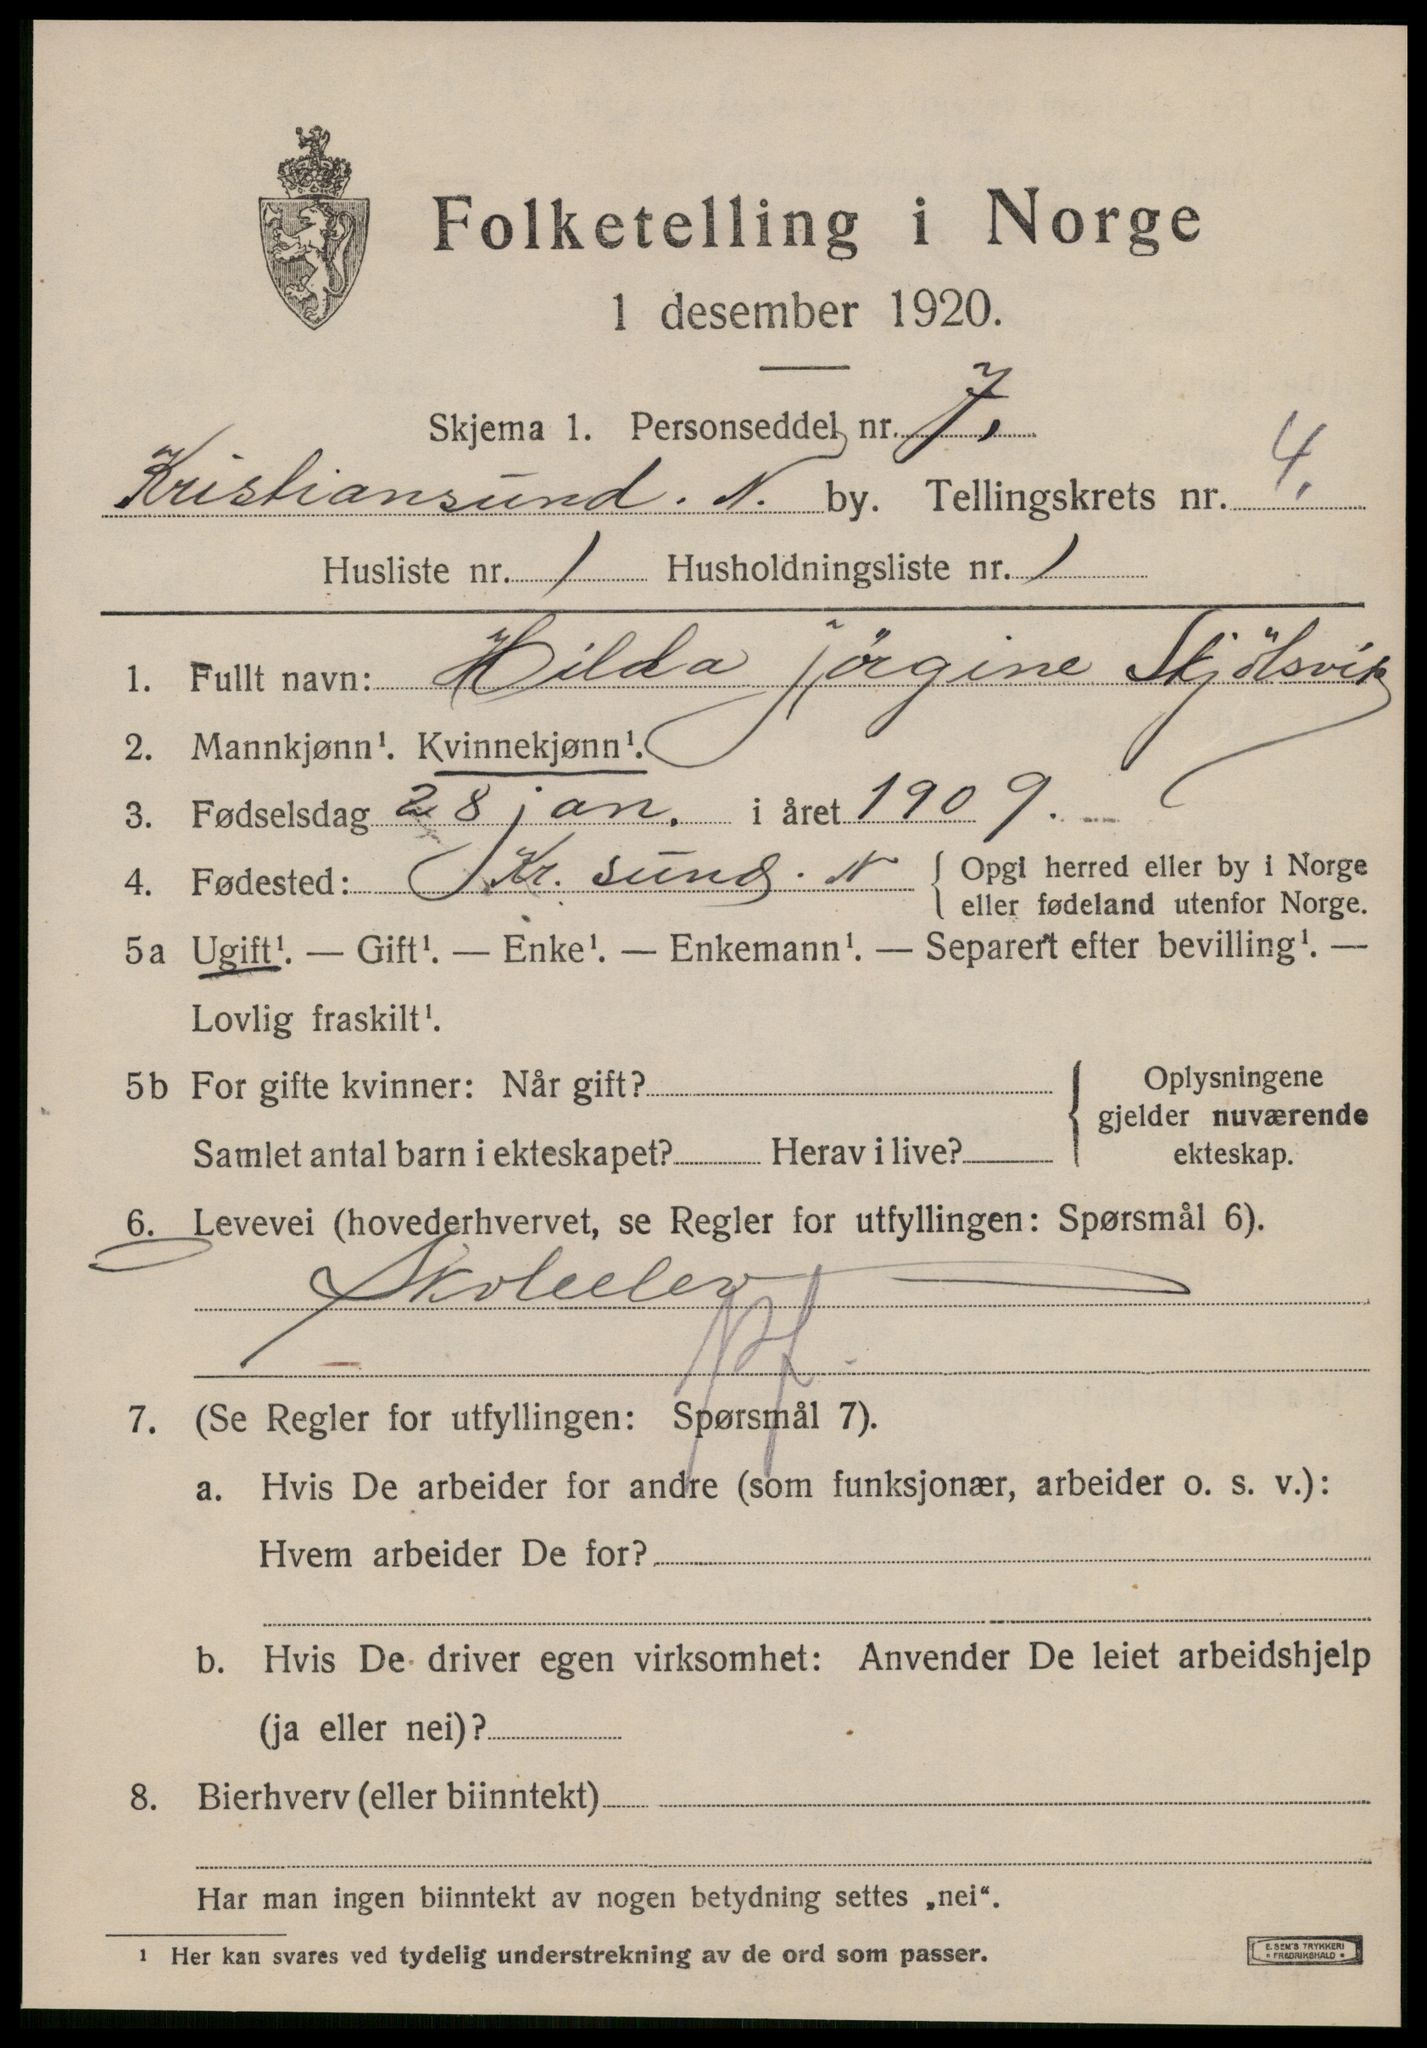 Folketelling i Norge
1 desember 1920.
Skjema 1. Personseddel nr. 7.
Kristiansund. N. by. Tellingskrets nr. 4.
Husliste nr. 1 Husholdningsliste nr. 1
1. Fullt navn: Hilda Jörgine Skjölsvik
2. Mannkjønn¹. Kvinnekjønn¹.
3. Fødselsdag 28 jan. i året 1909.
4. Fødested: Kr. sund. N { Opgi herred eller by i Norge
eller fødeland utenfor Norge.
5a Ugift¹. — Gift¹. — Enke¹. — Enkemann¹. — Separert efter bevilling¹. —
Lovlig fraskilt¹.
5b For gifte kvinner: Når gift? { Oplysningene
gjelder nuværende
Samlet antal barn i ekteskapet? Herav i live? ekteskap.
6. Levevei (hovederhvervet, se Regler for utfyllingen: Spørsmål 6).
Skoleelev
7. (Se Regler for utfyllingen: Spørsmål 7).
a. Hvis De arbeider for andre (som funksjonær, arbeider o. s. v.):
Hvem arbeider De for?
b. Hvis De driver egen virksomhet: Anvender De leiet arbeidshjelp
(ja eller nei)?
8. Bierhverv (eller biinntekt)
Har man ingen biinntekt av nogen betydning settes „nei“.
¹ Her kan svares ved tydelig understrekning av de ord som passer.
E. SEM'S TRYKKERI
FREDRIKSHALD